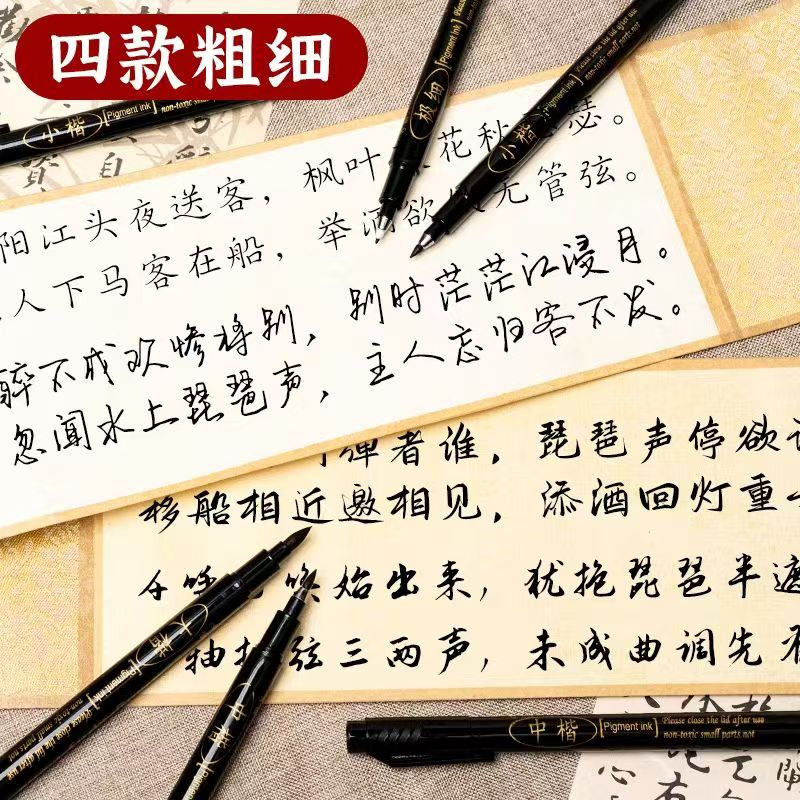 四款粗细
小楷 Pigment ink Please close the lid after use
non-toxic small parts.not
极细 Pigment ink
小楷 Pigment ink Please close the lid after use
non-toxic small parts.not
阳江头夜送客，枫叶花秋瑟。
人下马客在船，举酒欲无管弦。
醉不成欢惨将别，别时茫茫江浸月。
忽闻水上琵琶声，主人忘归客不发。
弹者谁，琵琶声停欲
移船相近邀相见，添酒回灯重
千呼唤始出来，犹抱琵琶半遮
轴拨弦三两声，未成曲调先
大楷 Pigment ink Please close the lid after use
non-toxic small parts.not
中楷 Pigment ink
中楷 Pigment ink Please close the lid after use
non-toxic small parts.not